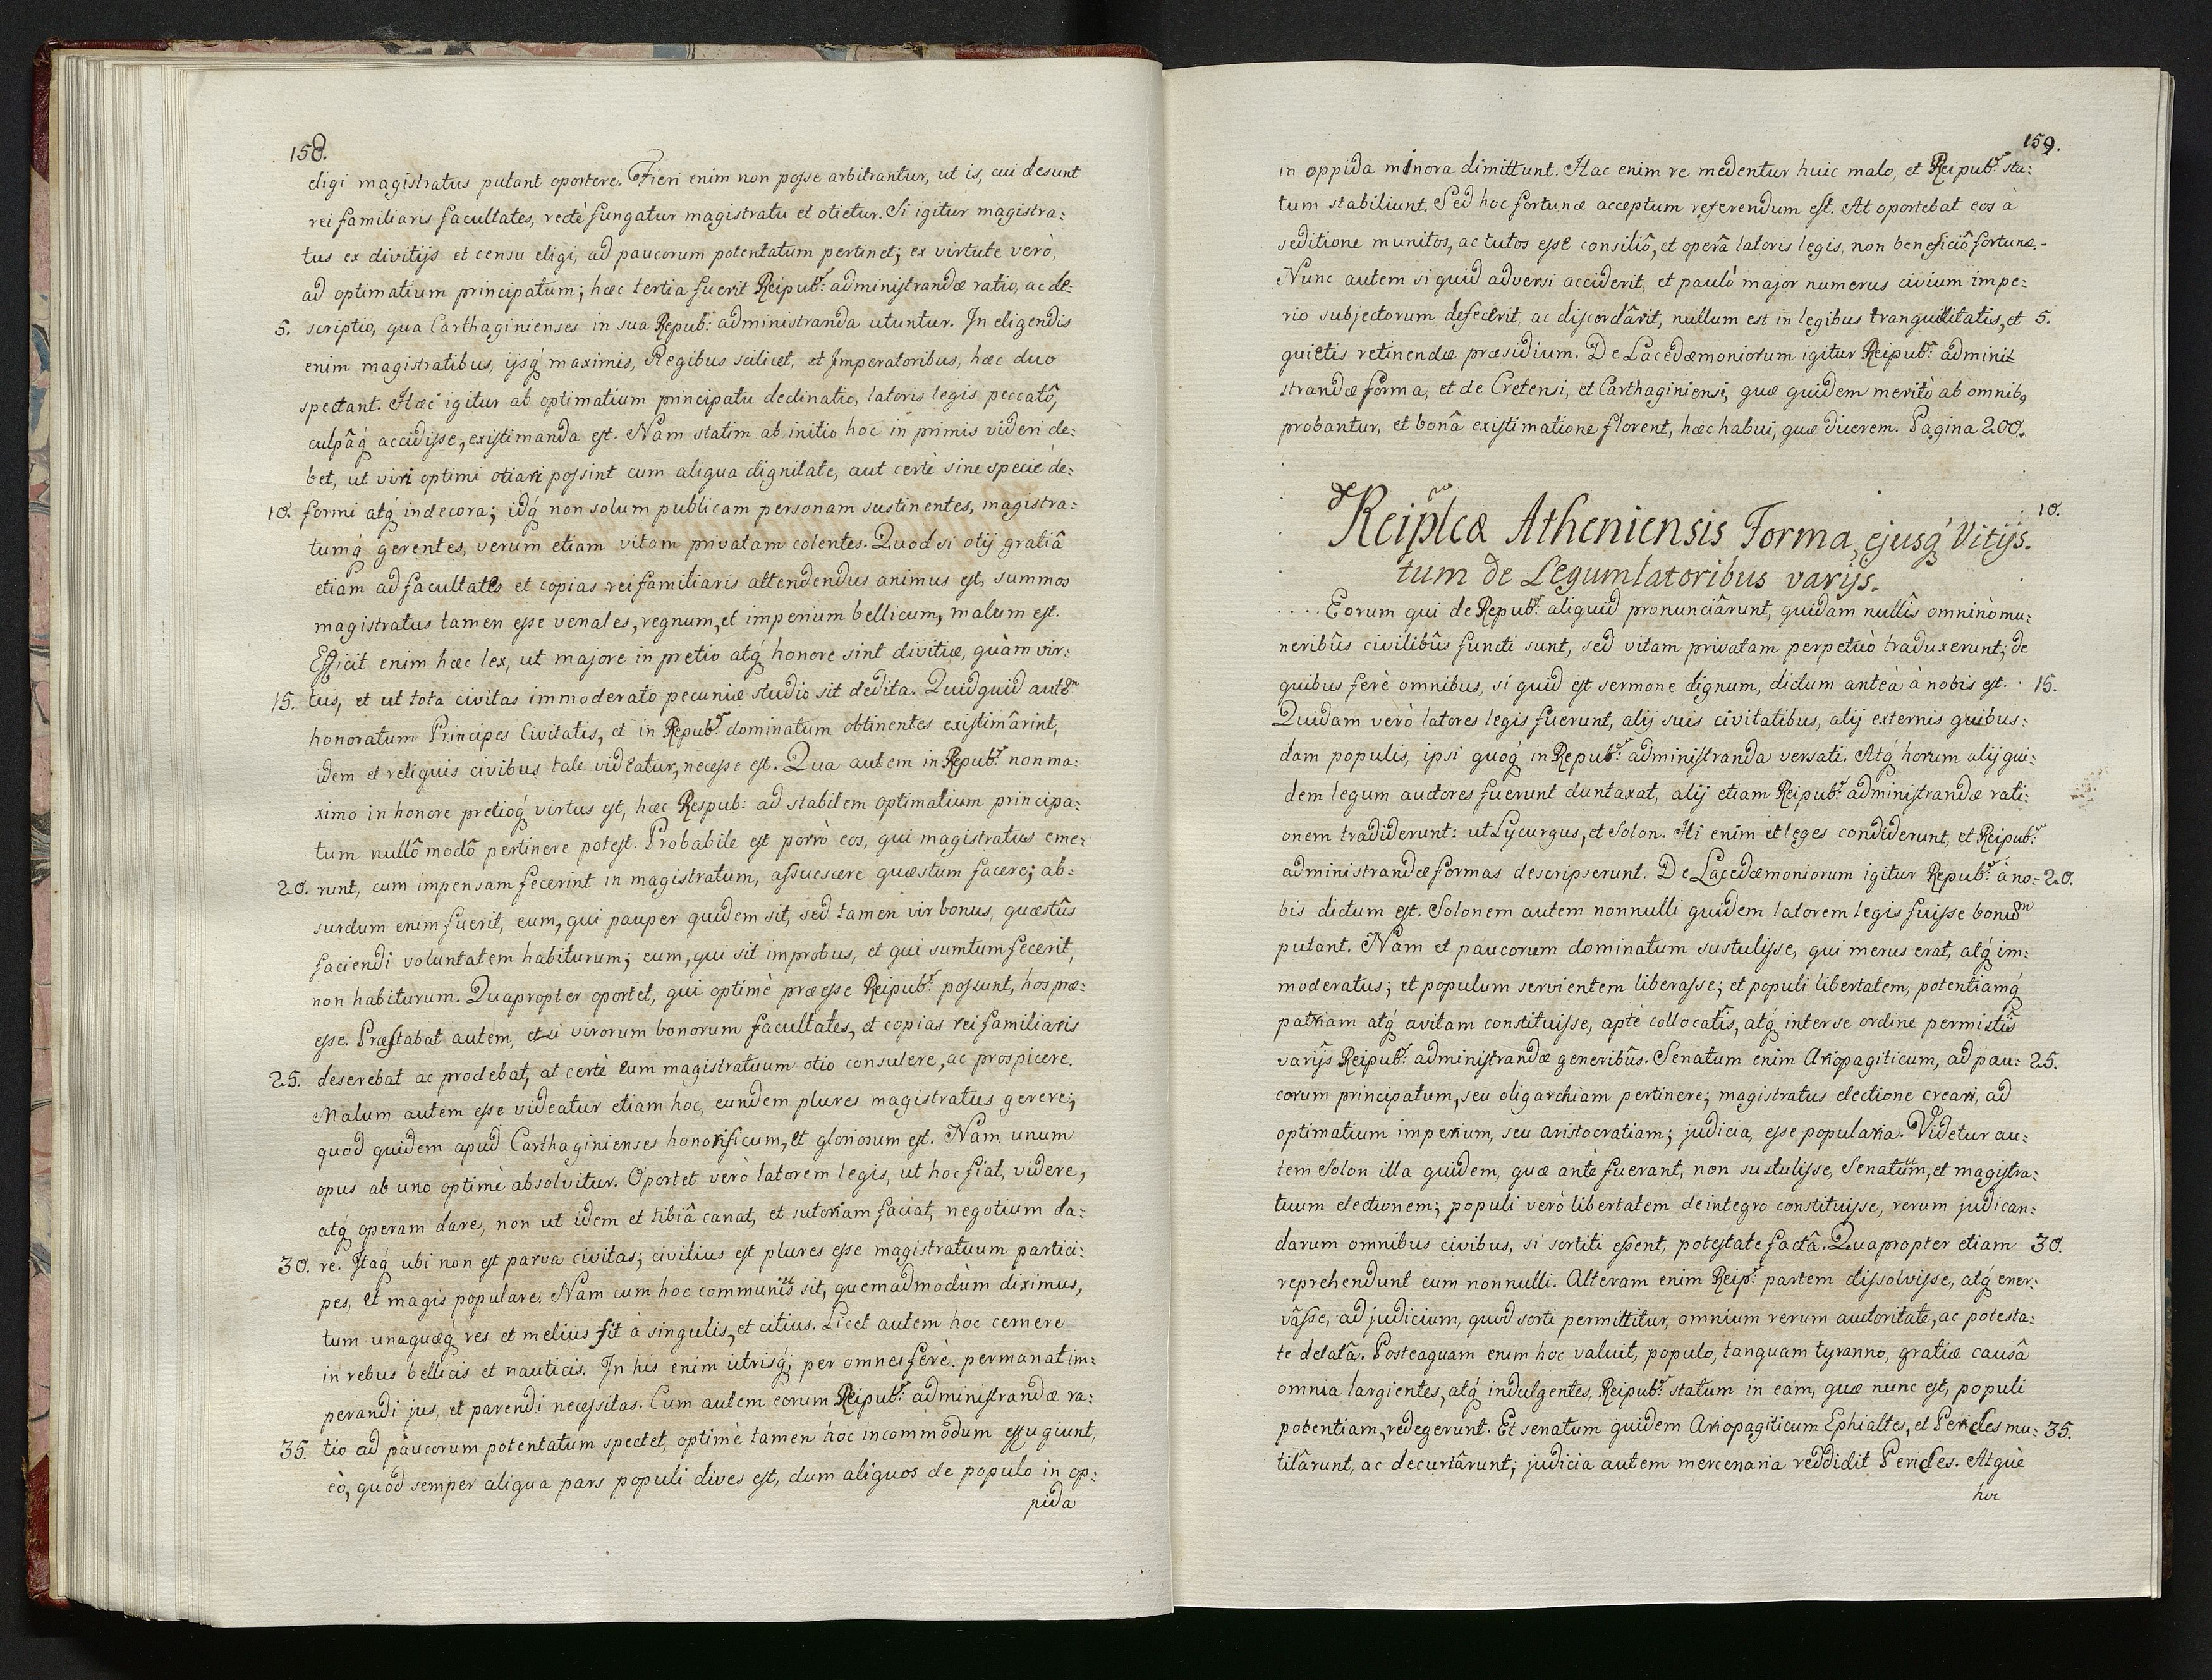 158.
eligi magistratus putant oportere. Fieri enim non posse arbitrantur, ut is, cui desunt
rei familiaris facultates, rectè fungatur magistratu et otietur. Si igitur magistra:
tus ex divitijs et censu eligi, ad paucorum potentatum pertinet; ex virtute verò,
ad optimatium principatum; hæc tertia fuerit Reipub: administrandæ ratio, ac de:
5. scriptio, qua Carthaginienses in sua Repub: administranda utuntur. In eligendis
enim magistratibus, ijsq́ maximis, Regibus scilicet, et Imperatoribus, hæc duo
spectant. Hæc igitur ab optimatium principatu declinatio, latoris legis peccatô,
culpâq́ accidisse, existimanda est. Nam statim ab initio hoc in primis videri de:
bet, ut viri optimi otiari possint cum aliqua dignitate, aut certè sine specie de:
10. formi atq́ indecora; idq́ non solum publicam personam sustinentes, magistra:
tumq́ gerentes, verum etiam vitam privatam colentes. Quod si otij gratiâ
etiam ad facultates et copias rei familiaris attendendus animus est, summos
magistratus tamen esse venales, regnum, et imperium bellicum, malum est.
Efficit enim hæc lex, ut majore in pretio atq́ honore sint divitiæ, quàm vir:
15. tus, et ut tota civitas immoderato pecuniæ studio sit dedita. Quidquid autem
honoratum Principes Civitatis, et in Repub: dominatum obtinentes existimârint,
idem et reliquis civibus tale videatur, necesse est. Qua autem in Repub: non ma:
ximo in honore pretioq́ virtus est, hæc Respub: ad stabilem optimatium principa:
tum nullô modô pertinere potest. Probabile est porrò eos, qui magistratus eme:
20. runt, cum impensam fecerint in magistratum, assuescere quæstum facere; ab:
surdum enim fuerit, eum, qui pauper quidem sit, sed tamen vir bonus, quæstûs
faciendi voluntatem habiturum; eum, qui sit improbus, et qui sumtum fecerit,
non habiturum. Quapropter oportet, qui optimè præesse Reipub: possunt, hos præ:
esse. Præstabat autem, etsi virorum bonorum facultates, et copias rei familiaris
25. deserebat ac prodebat, at certè eum magistratuum otio consulere, ac prospicere.
Malum autem esse videatur etiam hoc, eundem plures magistratus gerere;
quod quidem apud Carthaginienses honorificum, et gloriosum est. Nam unum
opus ab uno optimè absolvitur. Oportet verò latorem legis, ut hoc fiat, videre,
atq́ operam dare, non ut idem et tibiâ canat, et sutoriam faciat, negotium da:
30. re. Itaq́ ubi non est parva civitas; civilius est plures esse magistratuum partici:
pes, et magis populare. Nam cum hoc communius sit, quemadmodùm diximus,
tum unaquæq́ res et melius fit à singulis, et citius. Licet autem hoc cernere
in rebus bellicis et nauticis. In his enim utrisq́; per omnes ferè permanat im:
perandi jus, et parendi necessitas. Cum autem eorum Reipub: administrandæ ra:
35. tio ad paucorum potentatum spectet, optimè tamen hoc incommodum effugiunt,
eò, quod semper aliqua pars populi dives est, dum aliquos de populo in op:
pida
159.
in oppida minora dimittunt. Hac enim re medentur huic malo, et Reipub: sta:
tum stabiliunt. Sed hoc fortunæ acceptum referendum est. At oportebat eos à
seditione munitos, ac tutos esse consiliô, et operâ latoris legis, non beneficiô fortunæ.-
Nunc autem si quid adversi acciderit, et paulò major numerus civium impe:
rio subjectorum defecerit, ac discordârit, nullum est in legibus tranquillitatis, et 5.
quietis retinendæ præsidium. De Lacedæmoniorum igitur Reipub: adminis
strandæ forma, et de Cretensi, et Carthaginiensi, quæ quidem meritò ab omnibꝰ
probantur, et bonâ existimatione florent, hæc habui, quæ dicerem. Pagina 200.
de Reiplcæ Atheniensis Forma, ejusq́ Vitijs. 10.
tum de Legumlatoribus varijs.
.... Eorum qui de Repub: aliquid pronunciârunt, quidam nullîs omninò mu:
neribûs civilibûs functi sunt, sed vitam privatam perpetuò traduxerunt; de
quibus ferè omnibus, si quid est sermone dignum, dictum anteà à nobis est. 15.
Quidam verò latores legis fuerunt, alij suis civitatibus, alij externis quibus:
dam populis, ipsi quoq́ in Repub: administranda versati. Atq́ horum alij qui:
dem legum auctores fuerunt duntaxat, alij etiam Reipub: administrandæ rati:
onem tradiderunt: ut Lycurgus, et Solon. Hi enim et leges condiderunt, et Reipub:
administrandæ formas descripserunt. De Lacedæmoniorum igitur Repub: à no: 20.
bis dictum est. Solonem autem nonnulli quidem latorem legis fuisse bonum
putant. Nam et paucorum dominatum sustulisse, qui merus erat, atq́ im:
moderatus; et populum servientem liberasse; et populi libertatem, potentiamq́
patriam atq́ avitam constituisse, aptè collocatîs, atq́ inter se ordine permistîs
varijs Reipub: administrandæ generibûs. Senatum enim Ariopagiticum, ad pau: 25.
corum principatum, seu oligarchiam pertinere; magistratus electione creari, ad
optimatium imperium, seu aristocratiam; judicia, esse popularia. Videtur au:
tem Solon illa quidem, quæ antè fuerant, non sustulisse, Senatum, et magistra:
tuum electionem; populi verò libertatem de integro constituisse, rerum judican:
darum omnibus civibus, si sortiti essent, potestate factâ. Quapropter etiam 30.
reprehendunt eum nonnulli. Alteram enim Reip: partem dissolvisse, atq́ ener:
vâsse, ad judicium, quod sorti permittitur, omnium rerum auctoritate, ac potesta:
te delatâ. Posteaquam enim hoc valuit, populo, tanquam tyranno, gratiæ causâ
omnia largientes, atq́ indulgentes, Reipub: statum in eam, quæ nunc est, populi
potentiam, redegerunt. Et senatum quidem Ariopagiticum Ephialtes, et Pericles mu: 35.
tilârunt, ac decurtârunt; judicia autem mercenaria reddidit Pericles. Atquè